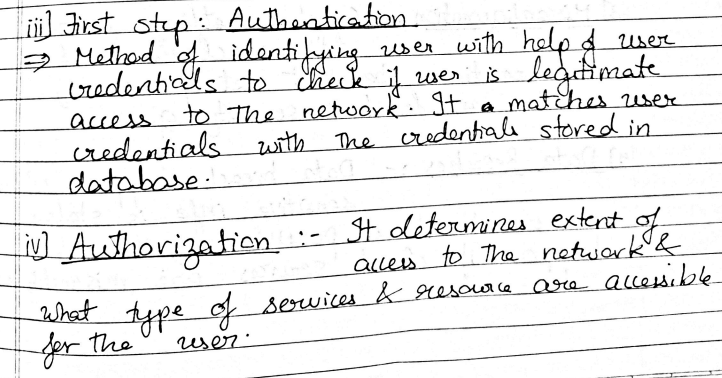 iii] First step : Authentication
⇒ Method of identifying user with help of user
credentials to check if user is legitimate
access to The network. It a matches user
credentials with The credentials stored in
database.
iv] Authorization :- It determines extent of
access to The network &
what type of services & resource are accessible
for the user.